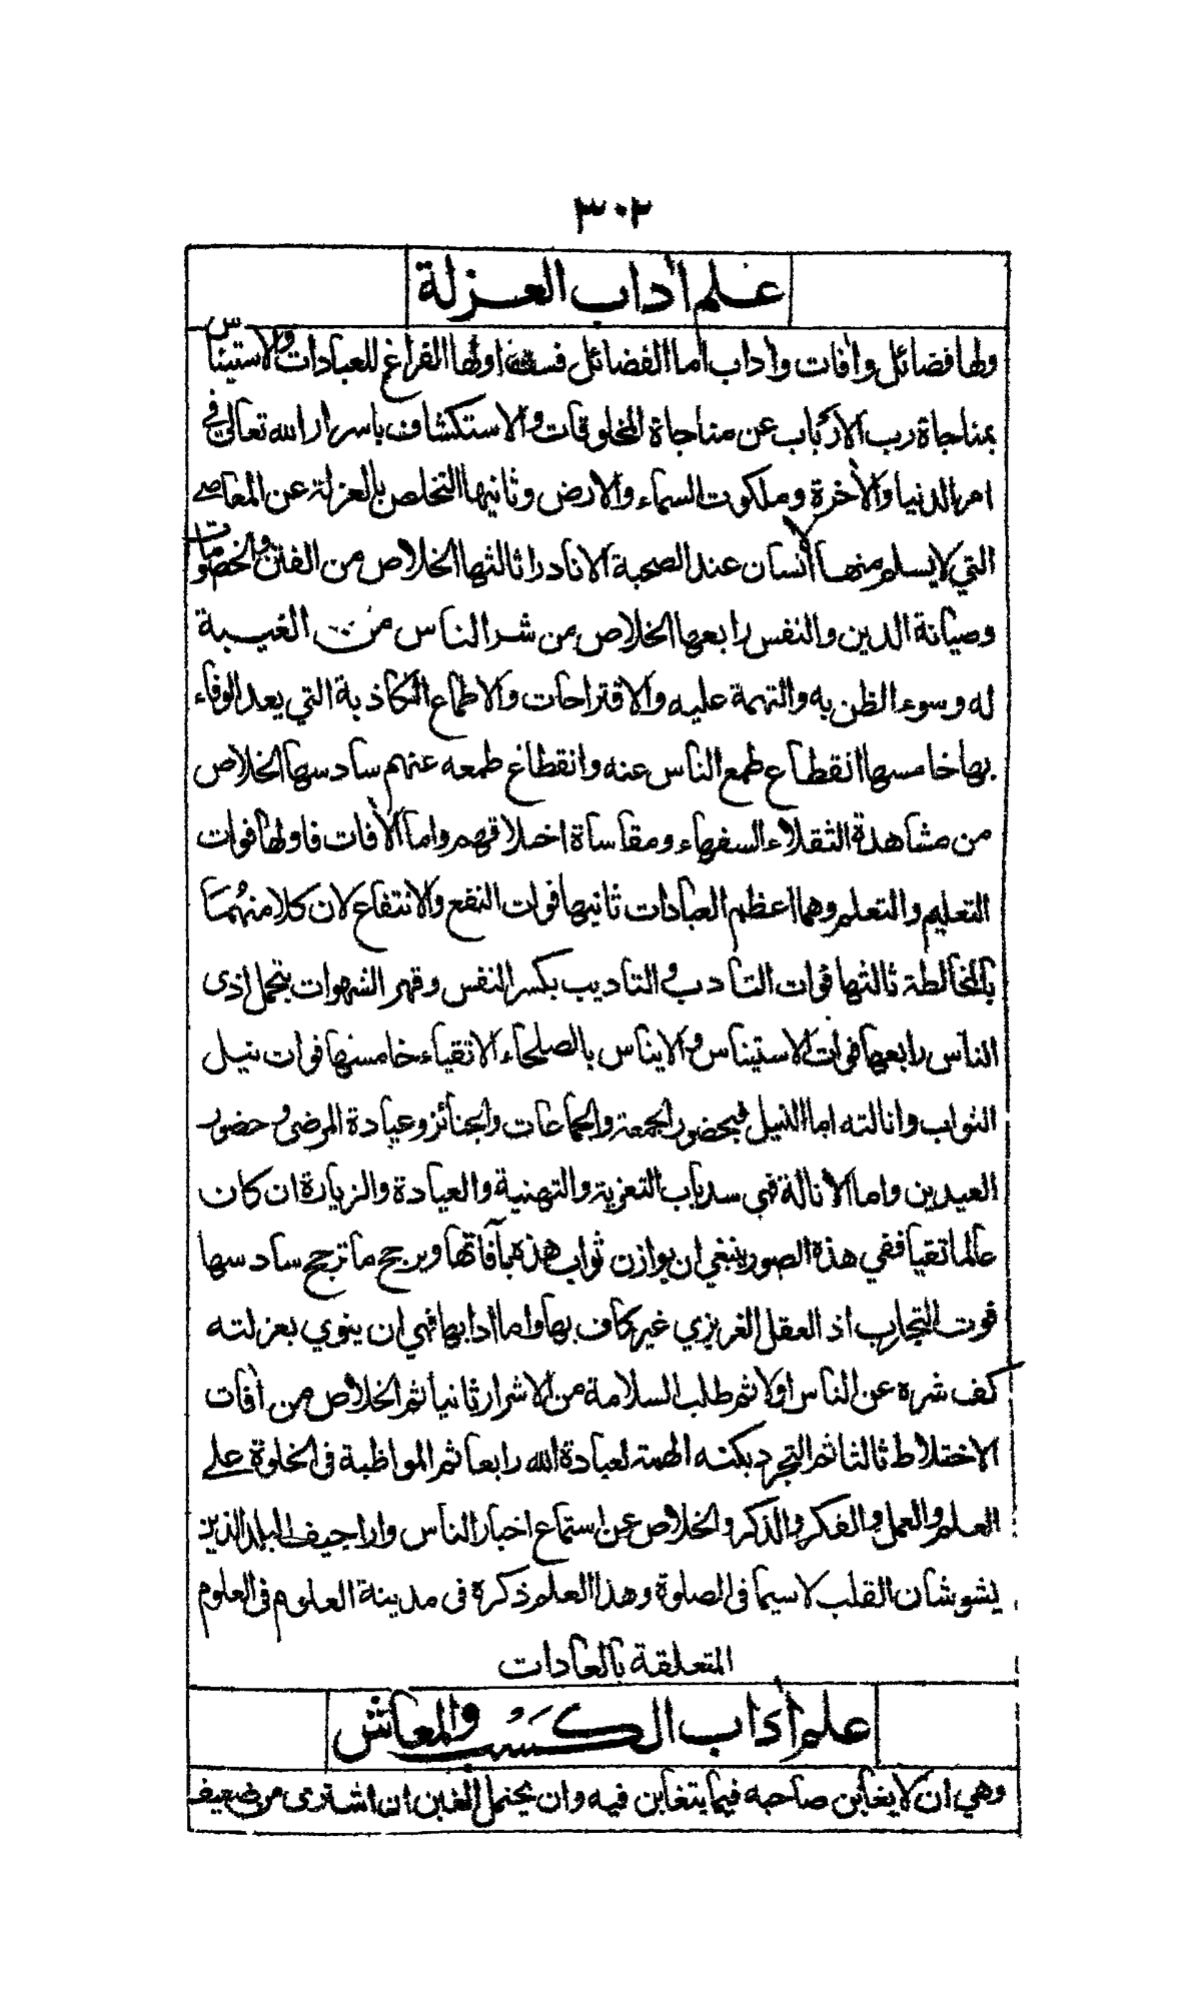 ٣٠٢
علم اداب العزلة
ولها فضائل وآفات واداب اما الفضائل فستة اولها الفراغ للعبادات والاستيناس
بمناجاة رب الارباب عن مناجاة المخلوقات والاستكشاف باسرار الله تعالى في
امر الدنيا والآخرة وملكوت السماء والارض وثانيها التخلص بالعزلة عن المعاصي
التي لا يسلم منها الانسان عند الصحبة الا نادرا ثالثها الخلاص من الفتن والخصومات
وصيانة الدين والنفس رابعها الخلاص من شر الناس من الغيبة
له وسوء الظن به والتهمة عليه والاقتراحات والاطماع الكاذبة التي يعد الوفاء
بها خامسها انقطاع طمع الناس عنه وانقطاع طمعه عنهم سادسها الخلاص
من مشاهدة الثقلاء السفهاء ومقاساة اخلاقهم واما الآفات فاولها فوات
التعليم والتعلم وهما اعظم العبادات ثانيها فوات النفع والانتفاع لان كلا منهما
بالمخالطة ثالثها فوات التأدب والتاديب بكسر النفس وقهر الشهوات بتحمل اذى
الناس رابعها فوات الاستيناس والايناس بالصلحاء الاتقياء خامسها فوات نيل
الثواب وانالته اما النيل فبحضور الجمعة والجماعات والجنائز وعيادة المرضى وحضور
العيدين واما الانالة فهي سد باب التعزية والتهنية والعيادة والزيارة ان كان
عالما تقيا ففي هذه الصور ينبغي ان يوازن ثواب هذه بآفاتها ويرجح ما ترجح سادسها
فوت التجارب اذ العقل الغريزي غير كاف بها واما ادابها فهي ان ينوي بعزلته
كف شره عن الناس اولا ثم طلب السلامة من الاشرار ثانيا ثم الخلاص من آفات
الاختلاط ثالثا ثم التجرد بكنه الهمة لعبادة الله رابعا ثم المواظبة فى الخلوة على
العلم والعمل والفكر والذكر والخلاص عن استماع اخبار الناس واراجيف البلد الذين
يشوشان القلب لا سيما فى الصلوة وهذا العلم ذكره فى مدينة العلوم فى العلوم
المتعلقة بالعادات
علم آداب الكسب والمعاش
وهي ان لا يغابن صاحبه فيما يتغابن فيه وان يحتمل الغبن ان اشترى من ضعيف